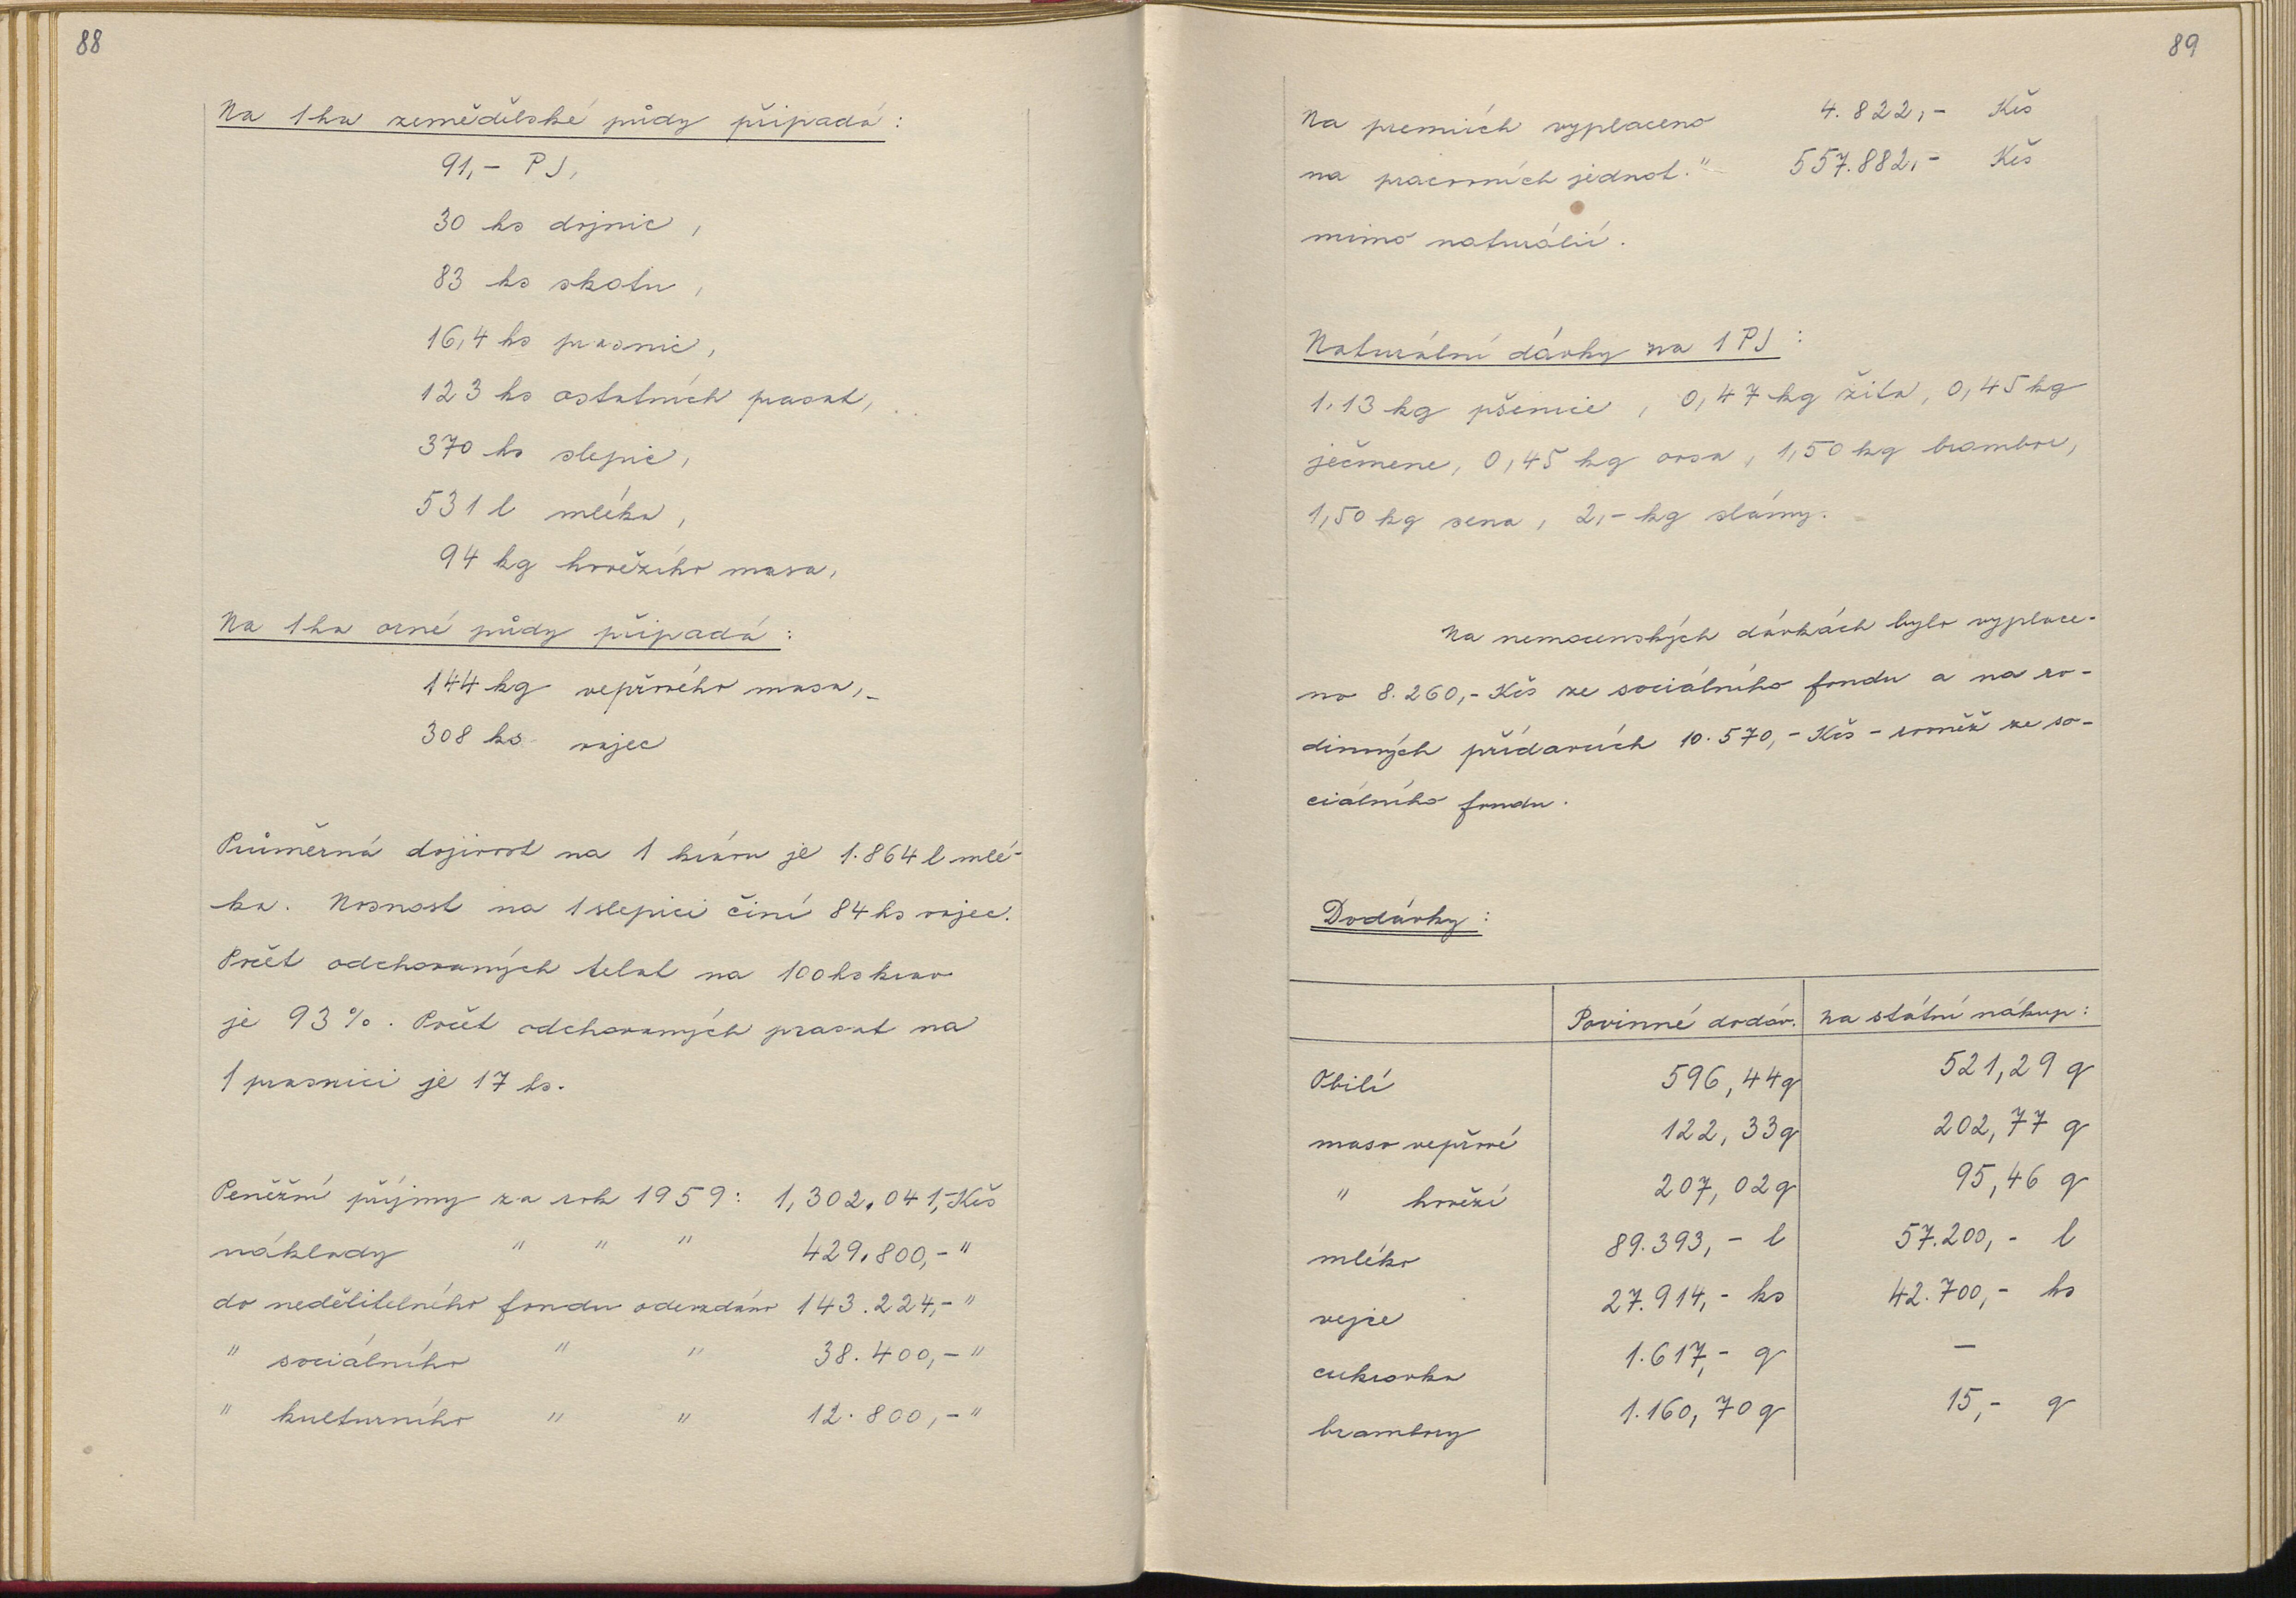 88
Na 1 ha zemědělské půdy připadá:
91,- PJ,
30 ks dojnic,
83 ks skotu,
16,4 ks prasnic,
123 ks ostatních prasat,
370 ks slepic,
531 l mléka,
94 kg hovězího masa,
Na 1 ha orné půdy připadá:
144 kg vepřového masa,
308 ks vajec
Průměrná dojivost na 1 krávu je 1.864 l mlé-
ka. Nosnost na 1 slepici činí 84 ks vajec.
Počet odchovaných telat na 100 ks krav
je 93%. Počet odchovaných prasat na
1 prasnici je 17 ks.
Peněžní příjmy za rok 1959: 1,302.041,- Kčs
náklady " " " 429.800,- "
do nedělitelného fondu odevzdáno 143.224,- "
" sociálního " " 38.400,- "
" kulturního " " 12.800,- "
89
Na premiích vyplaceno 4.822,- Kčs
na pracovních jednot. " 557.882,- Kčs
mimo naturálií.
Naturální dávky na 1 PJ:
1,13 kg pšenice, 0,47 kg žita, 0,45 kg
ječmene, 0,45 kg ovsa, 1,50 kg brambor,
1,50 kg sena, 2,- kg slámy.
Na nemocenských dávkách bylo vyplace-
no 8.260,- Kčs ze sociálního fondu a na ro-
dinných přídavcích 10.570,- Kčs - rovněž ze so-
ciálního fondu.
Dodávky:
Povinné dodáv. na státní nákup:
Obilí 596,44 q 521,29 q
maso vepřové 122,33 q 202,77 q
" hovězí 207,02 q 95,46 q
mléko 89.393,- l 57.200,- l
vejce 27.914,- ks 42.700,- ks
cukrovka 1.617,- q —
brambory 1.160,70 q 15,- q